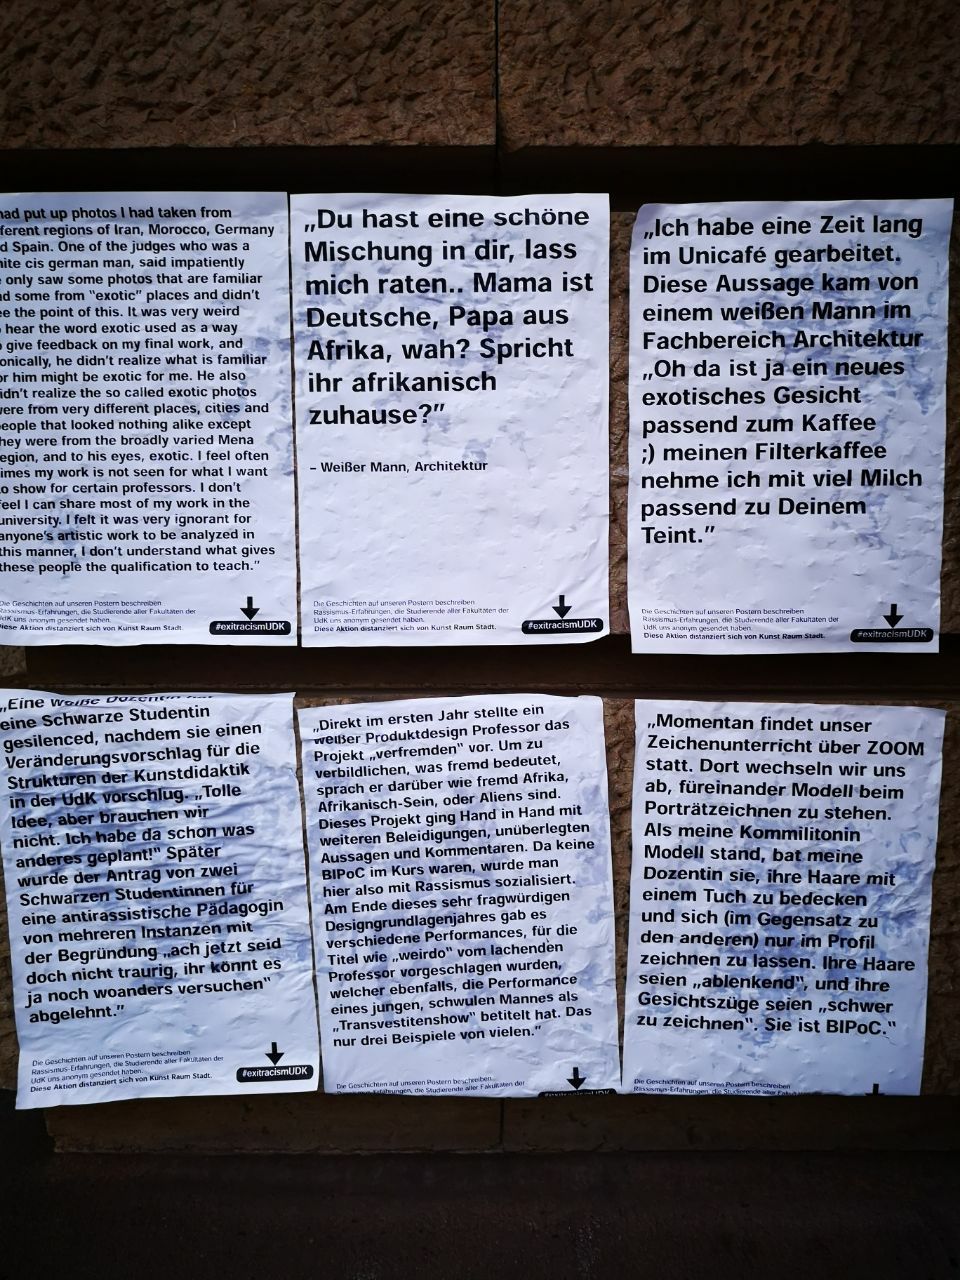 had put up photos I had taken from
ferent regions of Iran, Morocco, Germany
d Spain. One of the judges who was a
hite cis german man, said impatiently
only saw some photos that are familiar
nd some from “exotic” places and didn’t
ee the point of this. It was very weird
hear the word exotic used as a way
o give feedback on my final work, and
onically, he didn’t realize what is familiar
or him might be exotic for me. He also
idn’t realize the so called exotic photos
were from very different places, cities and
eople that looked nothing alike except
hey were from the broadly varied Mena
egion, and to his eyes, exotic. I feel often
imes my work is not seen for what I want
to show for certain professors. I don’t
feel I can share most of my work in the
university. I felt it was very ignorant for
anyone’s artistic work to be analyzed in
this manner, I don’t understand what gives
these people the qualification to teach.”
Die Geschichten auf unseren Postern beschreiben
Rassismus-Erfahrungen, die Studierende aller Fakultäten der
UdK uns anonym gesendet haben.
Diese Aktion distanziert sich von Kunst Raum Stadt.
#exitracismUDK
„Du hast eine schöne
Mischung in dir, lass
mich raten.. Mama ist
Deutsche, Papa aus
Afrika, wah? Spricht
ihr afrikanisch
zuhause?”
– Weißer Mann, Architektur
Die Geschichten auf unseren Postern beschreiben
Rassismus-Erfahrungen, die Studierende aller Fakultäten der
UdK uns anonym gesendet haben.
Diese Aktion distanziert sich von Kunst Raum Stadt.
#exitracismUDK
„Ich habe eine Zeit lang
im Unicafé gearbeitet.
Diese Aussage kam von
einem weißen Mann im
Fachbereich Architektur
„Oh da ist ja ein neues
exotisches Gesicht
passend zum Kaffee
;) meinen Filterkaffee
nehme ich mit viel Milch
passend zu Deinem
Teint.”
Die Geschichten auf unseren Postern beschreiben
Rassismus-Erfahrungen, die Studierende aller Fakultäten der
UdK uns anonym gesendet haben.
Diese Aktion distanziert sich von Kunst Raum Stadt.
#exitracismUDK
„Eine weiße Dozentin hat
eine Schwarze Studentin
gesilenced, nachdem sie einen
Veränderungsvorschlag für die
Strukturen der Kunstdidaktik
in der UdK vorschlug. „Tolle
Idee, aber brauchen wir
nicht. Ich habe da schon was
anderes geplant!“ Später
wurde der Antrag von zwei
Schwarzen Studentinnen für
eine antirassistische Pädagogin
von mehreren Instanzen mit
der Begründung „ach jetzt seid
doch nicht traurig, ihr könnt es
ja noch woanders versuchen“
abgelehnt.”
Die Geschichten auf unseren Postern beschreiben
Rassismus-Erfahrungen, die Studierende aller Fakultäten der
UdK uns anonym gesendet haben.
Diese Aktion distanziert sich von Kunst Raum Stadt.
#exitracismUDK
„Direkt im ersten Jahr stellte ein
weißer Produktdesign Professor das
Projekt „verfremden“ vor. Um zu
verbildlichen, was fremd bedeutet,
sprach er darüber wie fremd Afrika,
Afrikanisch-Sein, oder Aliens sind.
Dieses Projekt ging Hand in Hand mit
weiteren Beleidigungen, unüberlegten
Aussagen und Kommentaren. Da keine
BIPoC im Kurs waren, wurde man
hier also mit Rassismus sozialisiert.
Am Ende dieses sehr fragwürdigen
Designgrundlagenjahres gab es
verschiedene Performances, für die
Titel wie „weirdo“ vom lachenden
Professor vorgeschlagen wurden,
welcher ebenfalls, die Performance
eines jungen, schwulen Mannes als
„Transvestitenshow“ betitelt hat. Das
nur drei Beispiele von vielen.”
Die Geschichten auf unseren Postern beschreiben
Rassismus-Erfahrungen, die Studierende aller Fakultäten der
#exitracismUDK
„Momentan findet unser
Zeichenunterricht über ZOOM
statt. Dort wechseln wir uns
ab, füreinander Modell beim
Porträtzeichnen zu stehen.
Als meine Kommilitonin
Modell stand, bat meine
Dozentin sie, ihre Haare mit
einem Tuch zu bedecken
und sich (im Gegensatz zu
den anderen) nur im Profil
zeichnen zu lassen. Ihre Haare
seien „ablenkend“, und ihre
Gesichtszüge seien „schwer
zu zeichnen“. Sie ist BIPoC.“
Die Geschichten auf unseren Postern beschreiben
Rassismus-Erfahrungen, die Studierende aller Fakultäten der